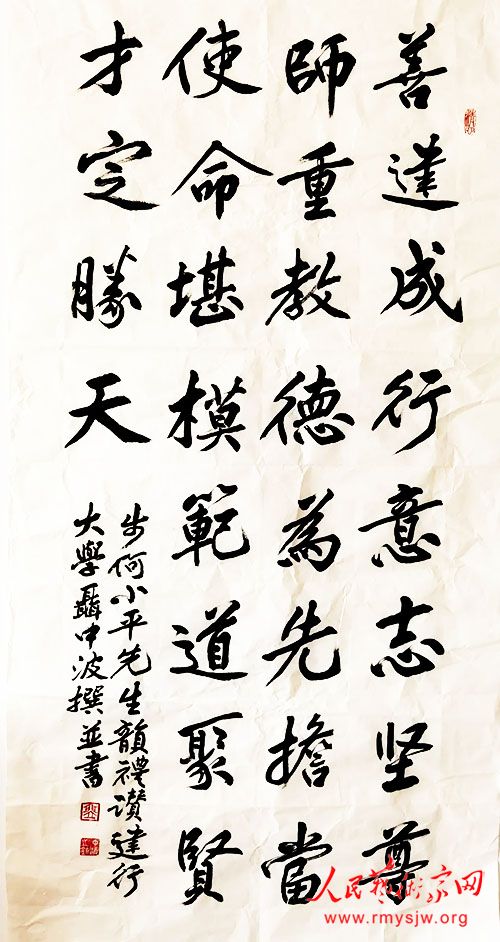 善建成行意志坚尊
師重教德為先擔當
使命堪模範道聚賢
才定勝天
步何小平先生韻禮讚建行
大學聶中波撰並書
人民藝術家网
www.rmysjw.org